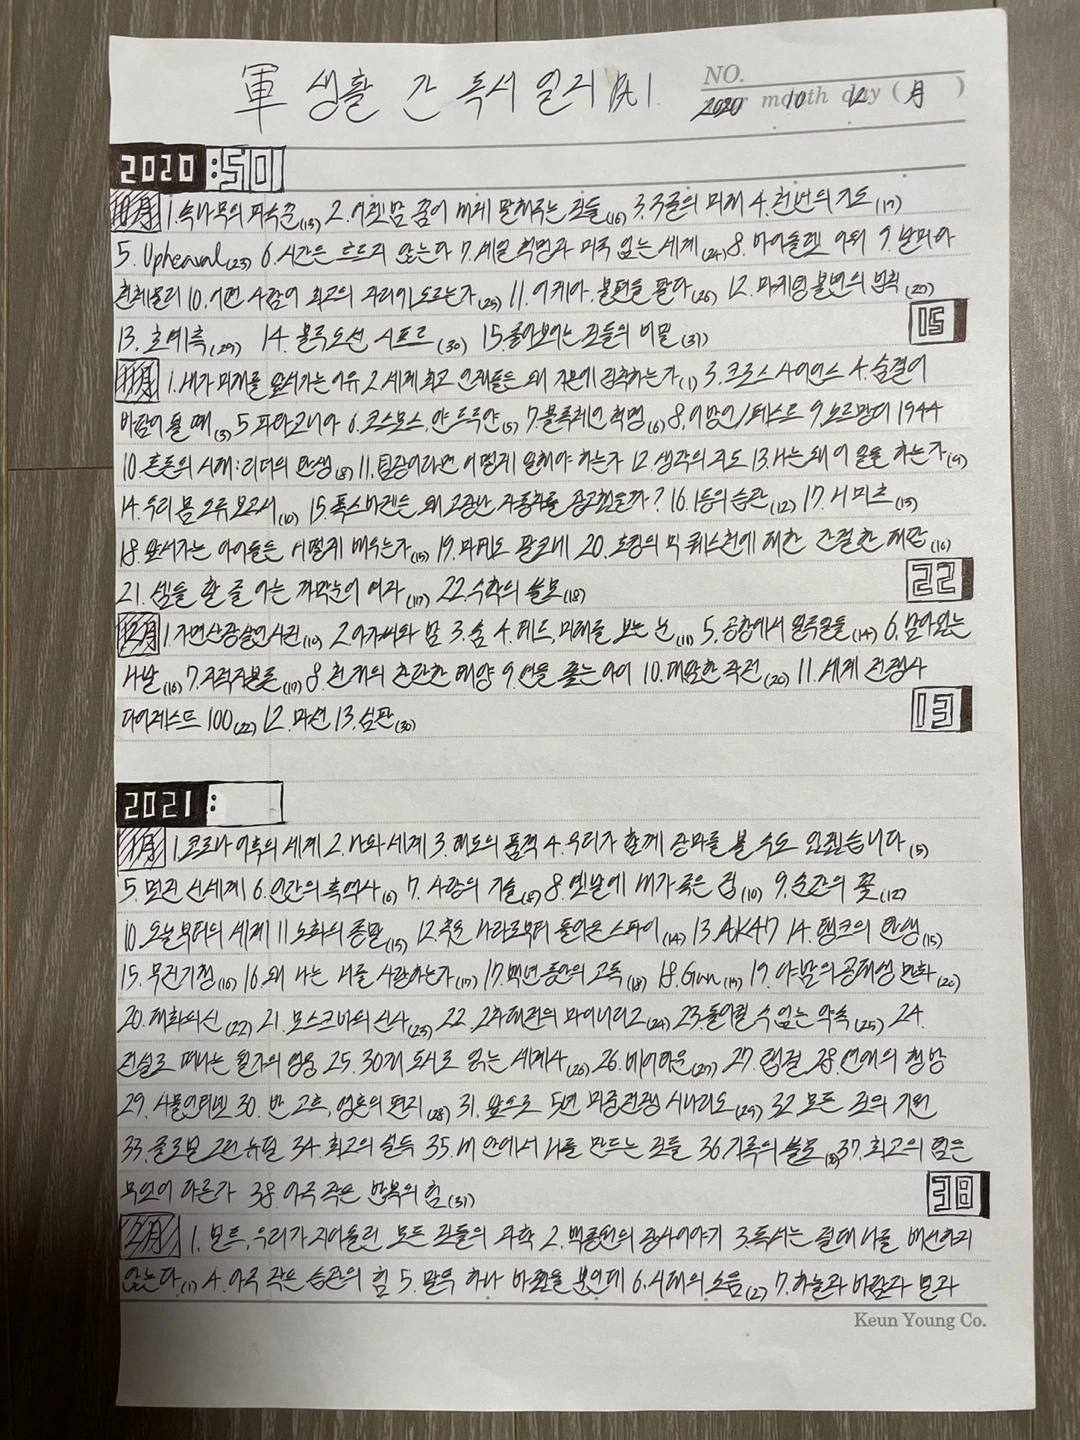 軍 생활 간 독서 일지 1.
NO.
2020 month 10 day 12 (月)
2020:50
10月 1. 속나무의 파수꾼(15) 2. 어젯밤 꿈이 내게 말해주는 것들(16) 3. 구글의 미래 4. 천년의 지도(17)
5. Upheaval(23) 6. 시간은 흐르지 않는다 7. 세일 혁명과 미국 없는 세계(24) 8. 마이클럽 아워 9. 낫마마
헌책물리 10. 어떤 사람이 최고의 자리에 오르는가(25) 11. 이케아, 불편을 팔다(26) 12. 마케팅 불변의 법칙(27)
13. 초예측(29) 14. 블루오션 시프트(30) 15. 좋아보이는 것들의 비밀(31) 15
11月 1. 내가 미래를 앞서가는 이유 2. 세계 최고 인재들은 왜 기본에 집중하는가(1) 3. 크로스 사이언스 4. 숨결이
바람이 될 때(3) 5. 파이코니아 6. 코스모스, 앤 드루얀(5) 7. 블록체인 혁명(6) 8. 이방인/페스트 9. 노르망디 1944
10. 혼돈의 시대: 리더의 탄생(8) 11. 팀장이라면 어떻게 일해야 하는가 12. 생각의 지도 13. 나는 왜 이 일을 하는가(9)
14. 우리 몸 오류 보고서(10) 15. 폭스바겐은 왜 고장난 자동차를 광고했을까? 16. 1등의 습관(12) 17. 니미츠(13)
18. 앞서가는 아이들은 어떻게 배우는가(15) 19. 마케도 팔코네 20. 호킹의 빅 퀘스천에 대한 간결한 대답(16)
21. 셈을 할 줄 아는 까막눈이 여자(17) 22. 수학의 쓸모(18) 22
12月 1. 가면산장 살인사건(10) 2. 아가씨와 밤 3. 숨 4. 레드, 미래를 보는 눈(11) 5. 공항에서 일주일을(14) 6. 남아있는
나날(16) 7. 지적자본론(17) 8. 천 개의 찬란한 태양 9. 연을 쫓는 아이 10. 대담한 작전(20) 11. 세계 전쟁사
다이제스트 100(22) 12. 마션 13. 심판(30) 13
2021:
1月 1. 코로나 이후의 세계 2. 나와 세계 3. 태도의 품격 4. 우리가 함께 장마를 볼 수도 있겠습니다(5)
5. 멋진 신세계 6. 인간의 흑역사(6) 7. 사랑의 기술(8) 8. 옛날에 내가 죽은 집(10) 9. 순간의 꽃(12)
10. 오늘부터의 세계 11. 노화의 종말(13) 12. 추운 나라로부터 돌아온 스파이(14) 13. AK47 14. 탱크의 탄생(15)
15. 무진기정(16) 16. 왜 나는 너를 사랑하는가(17) 17. 백년 동안의 고독(18) 18. Gun(19) 19. 야밤의 공대생 만화(20)
20. 대화의 신(22) 21. 모스크바의 신사(23) 22. 2차대전의 마이너리그(24) 23. 돌이킬 수 없는 약속(25) 24.
전설로 떠나는 월가의 영웅 25. 30개 도시로 읽는 세계사(26) 26. 메이마운(27) 27. 팀결 28. 언캐의 항방
29. 사물인터넷 30. 반 고흐, 영혼의 편지(28) 31. 앞으로 5년 미중전쟁 시나리오(29) 32. 모든 것의 기원
33. 글로벌 그린 뉴딜 34. 최고의 설득 35. 내 안에서 나를 만드는 것들 36. 기록의 쓸모 37. 최고의 팀은
무엇이 다른가 38. 아주 작은 반복의 힘(31) 38
2月 1. 본드, 우리가 지어올린 모든 것들의 과학 2. 백종원의 장사이야기 3. 독서는 절대 나를 배신하지
않는다(1) 4. 아주 작은 습관의 힘 5. 말투 하나 바꿨을 뿐인데 6. 시대의 소음(2) 7. 하늘과 바람과 별과
Keun Young Co.